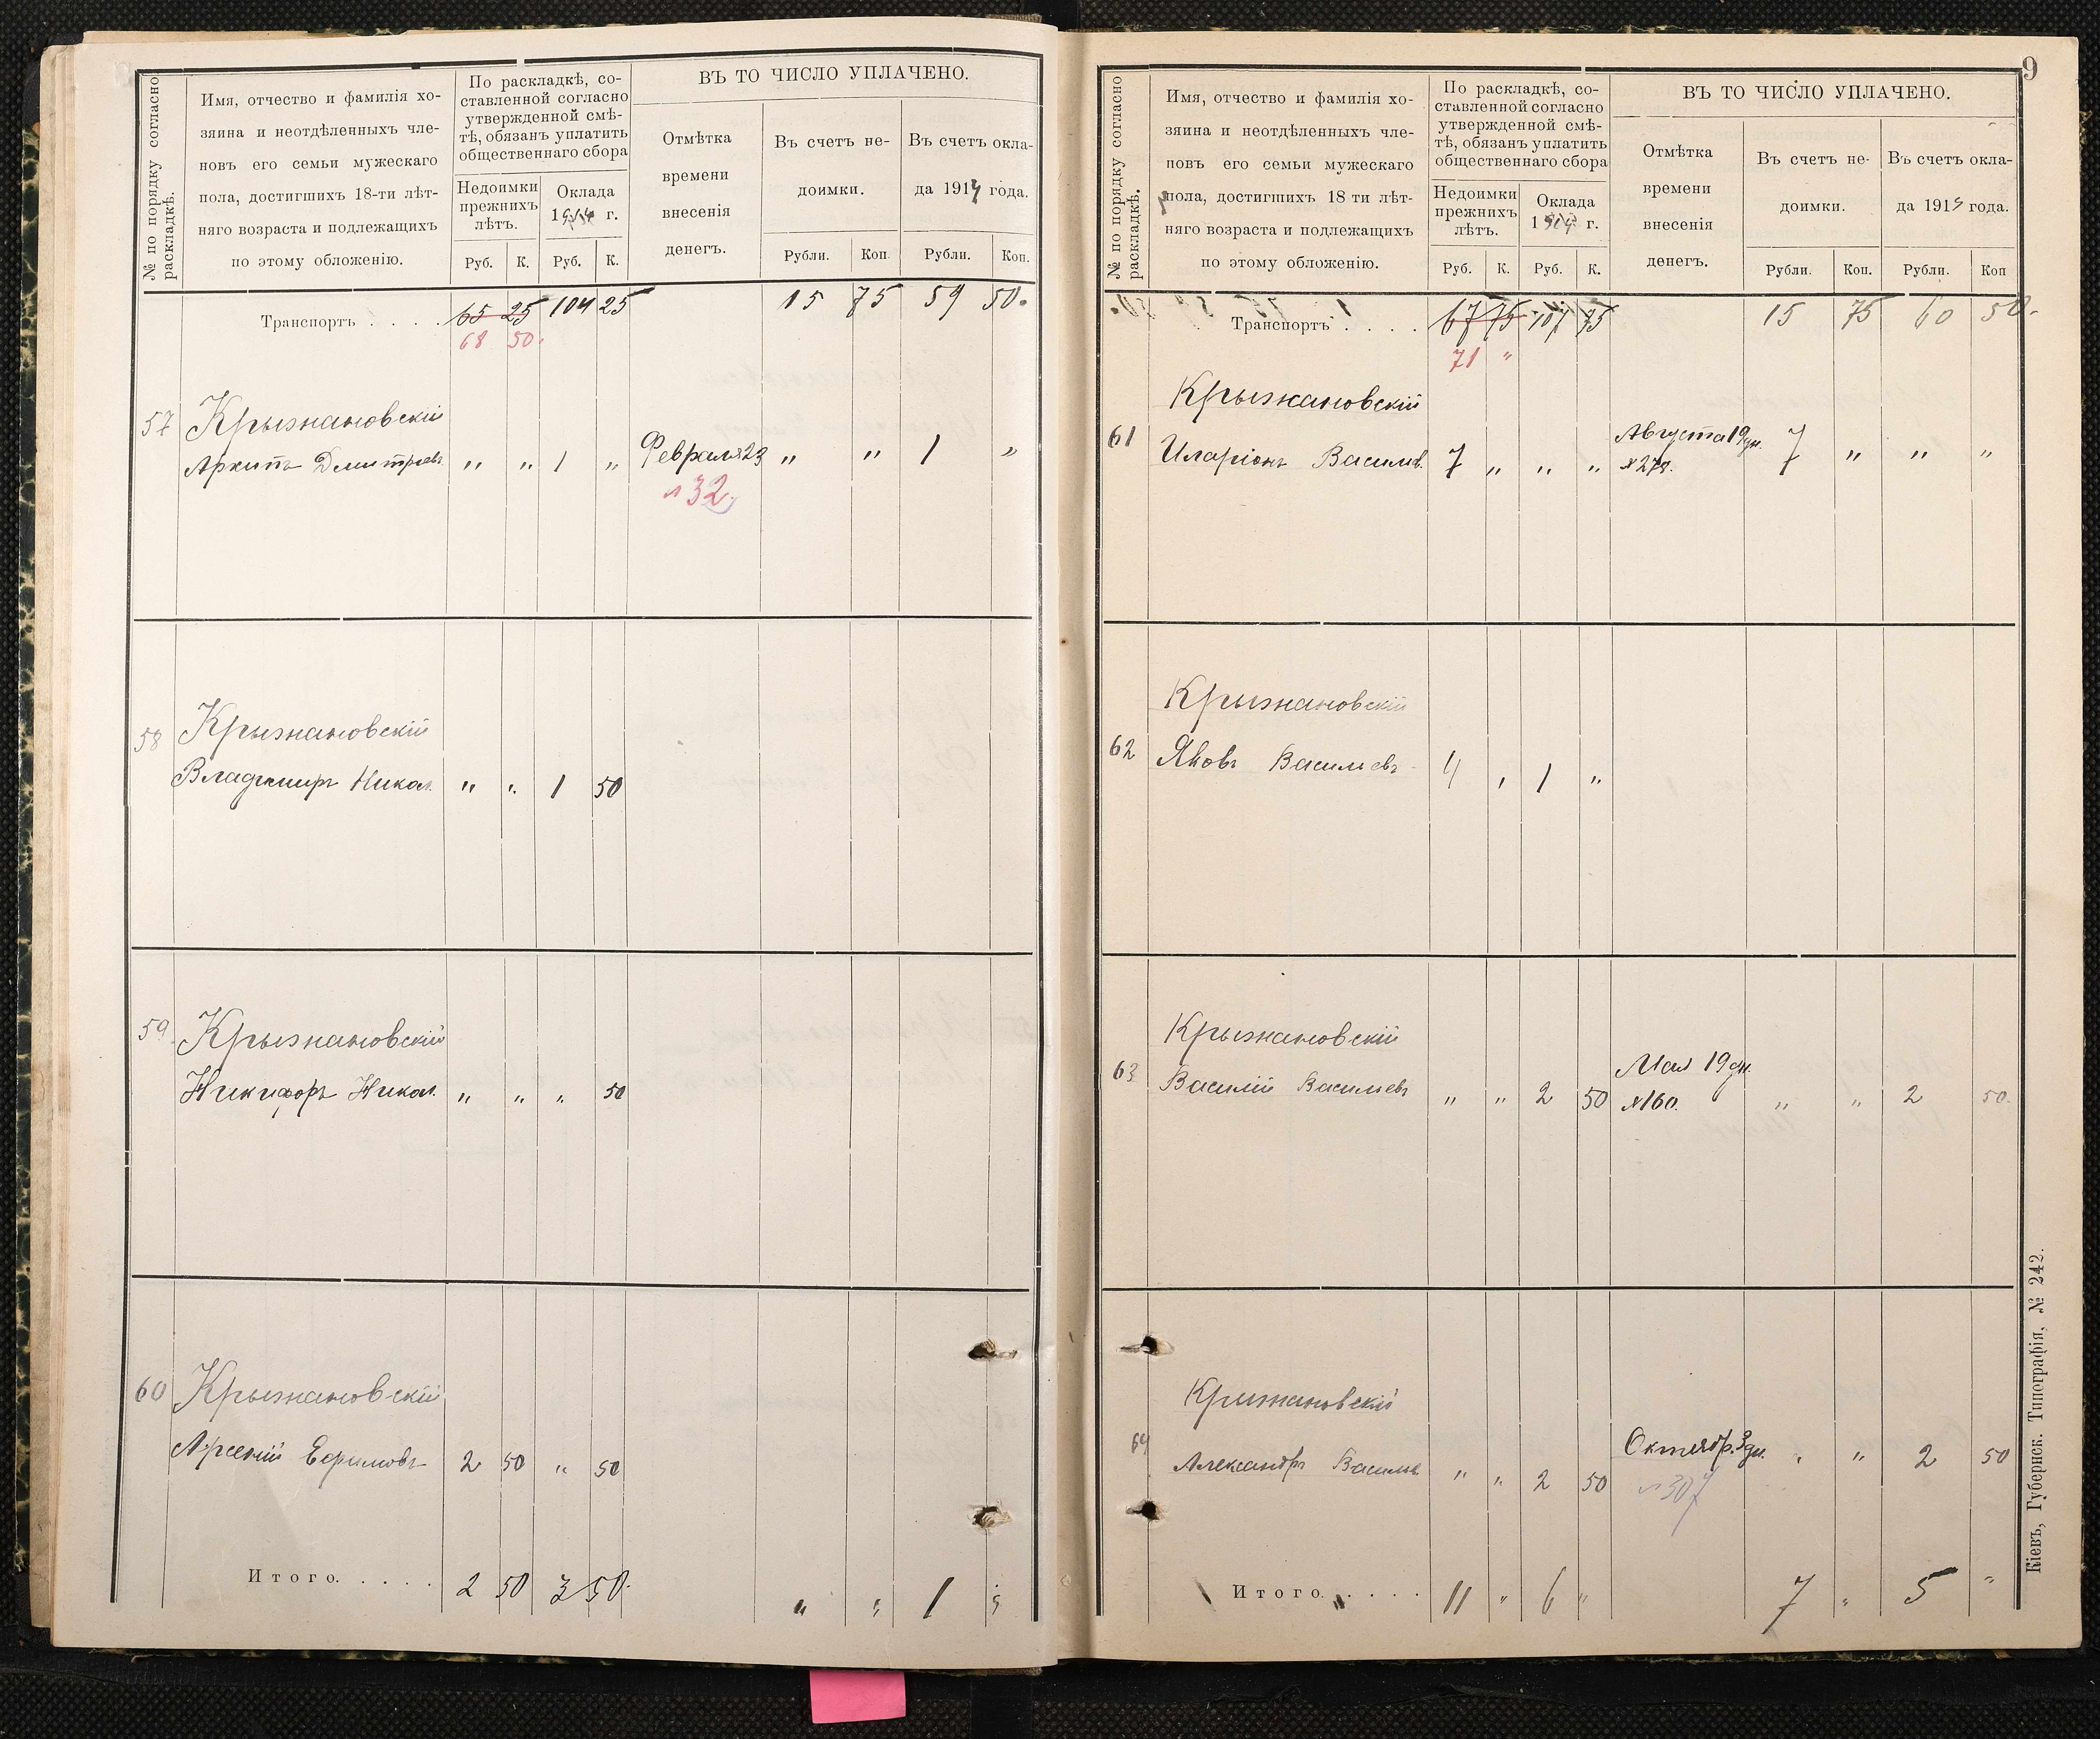 № по порядку согласно
раскладкѣ.
Имя, отчество и фамилія хо-
зяина и неотдѣленныхъ чле-
новъ его семьи мужескаго
пола, достигшихъ 18-ти лѣт-
няго возраста и подлежащихъ
по этому обложенію.
По раскладкѣ, со-
ставленной согласно
утвержденной смѣ-
тѣ, обязанъ уплатить
общественнаго сбора
Недоимки
прежнихъ
лѣтъ.
Оклада
1914 г.
Руб. К. Руб. К.
ВЪ ТО ЧИСЛО УПЛАЧЕНО.
Отмѣтка
времени
внесенія
денегъ.
Въ счетъ не-
доимки.
Въ счетъ окла-
да 1914 года.
Рубли. Коп. Рубли. Коп.
Транспортъ . . . . 65 25 104 25 15 75 59 50.
68 50.
57 Крыжановскій
Архипъ Дмитріевъ „ „ 1 „ Февраля 23 „ „ 1 „
№ 32.
58 Крыжановскій
Владимиръ Никол. „ „ 1 50
59 Крыжановскій
Никифоръ Никол. „ „ „ 50
60 Крыжановскій
Арсеній Ефимовъ 2 50 „ 50
Итого. . . . . 2 50 3 50. „ „ 1 „
9
№ по порядку согласно
раскладкѣ.
Имя, отчество и фамилія хо-
зяина и неотдѣленныхъ чле-
новъ его семьи мужескаго
пола, достигшихъ 18 ти лѣт-
няго возраста и подлежащихъ
по этому обложенію.
По раскладкѣ, со-
ставленной согласно
утвержденной смѣ-
тѣ, обязанъ уплатить
общественнаго сбора
Недоимки
прежнихъ
лѣтъ.
Оклада
1914 г.
Руб. К. Руб. К.
ВЪ ТО ЧИСЛО УПЛАЧЕНО.
Отмѣтка
времени
внесенія
денегъ.
Въ счетъ не-
доимки.
Въ счетъ окла-
да 1914 года.
Рубли. Коп. Рубли. Коп
Транспортъ . . . . 67 75 107 75 15 75 60 50.
71 „
Крыжановскій
61 Иларіонъ Васильев. 7 „ „ „ Августа 19 дн. 7 „ „ „
Крыжановскій
62 Яковъ Васильевъ 4 „ 1 „
Крыжановскій
63 Василій Васильевъ „ „ 2 50 Мая 19 дн. „ „ 2 50.
№ 160.
Крыжановскій
64 Александръ Васильев. „ „ 2 50 Октябр. 3 дн. „ „ 2 50
№ 307
Итого. . . . . 11 „ 6 „ 7 „ 5 „
Кіевъ, Губернск. Типографія, № 242.